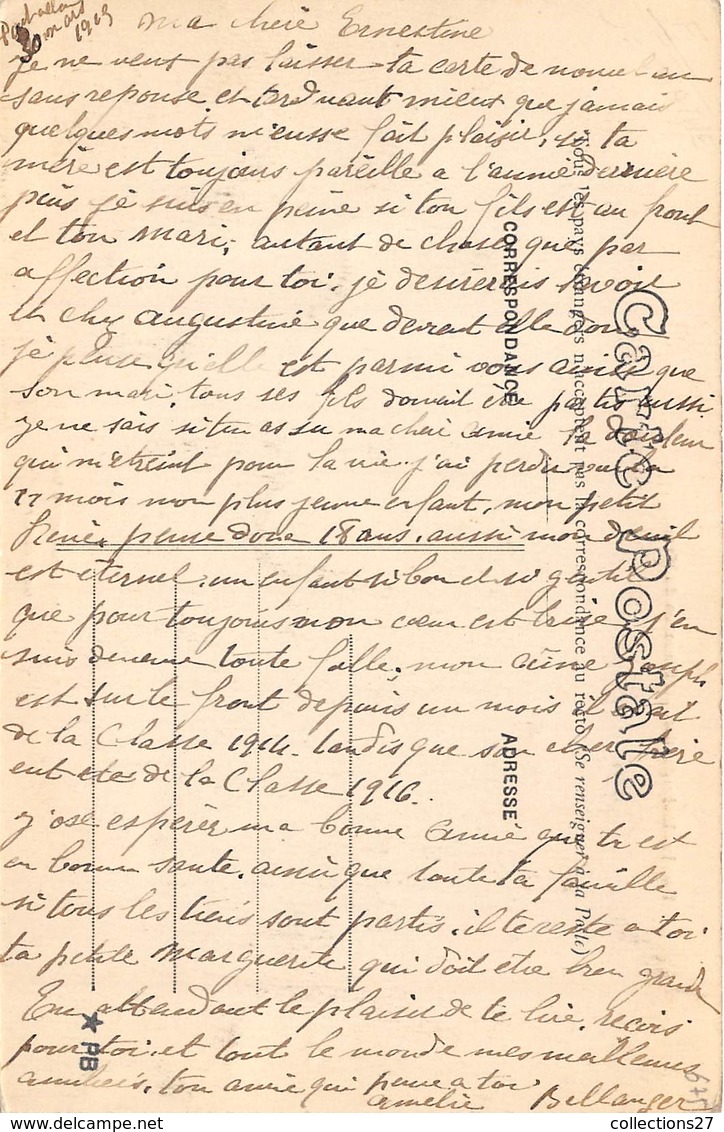 30 mars
1915
Ma chère Ernestine
je ne veux pas laisser ta carte de nouvel an
sans reponse et tard vaut mieux que jamais
quelques mots m'eusse fait plaisir, si ta
mère est toujours pareille a l'année dernière
puis je suis en peine si ton fils est au front
et ton Mari, autant de choses que par
affection pour toi. je desirerais savoir
et chez augustine que devient elle donc
je pense qu'elle est parmi vous ainsi que
son mari, tous ses fils doivent etre partis aussi
je ne sais si tu as su ma chere amie la douleur
qui m'etreint pour la vie. j'ai perdu
mois mon plus jeune enfant, mon petit
René, pense donc 18 ans, aussi mon deuil
est eternel, un enfant si bon et si gentil
que pour toujours mon cœur est brisé j'en
suis devenue toute folle, mon ainé Joseph
est sur le front depuis un mois il était
de la Classe 1914. tandis que son cher frère
eut ete de la Classe 1916.
j'ose espérer ma bonne Amie que tu est
en bonne sante. ainsi que toute ta famille
si tous les tiens sont partis, il te reste a toi
ta petite Marguerite qui doit etre bien grande
En attendant le plaisir de te lire, reçois
pour toi, et tout le monde mes meilleures
amitiés, ton amie qui pense a toi
amelie Bellanger
Carte Postale
Tous les pays étrangers n'acceptent pas la correspondance au recto (Se renseigner à la Poste)
CORRESPONDANCE
ADRESSE
★ PB
www.collections27